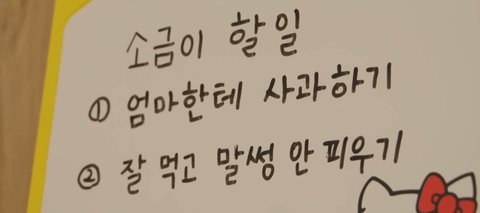 소금이 할 일
① 엄마한테 사과하기
② 잘 먹고 말썽 안 피우기